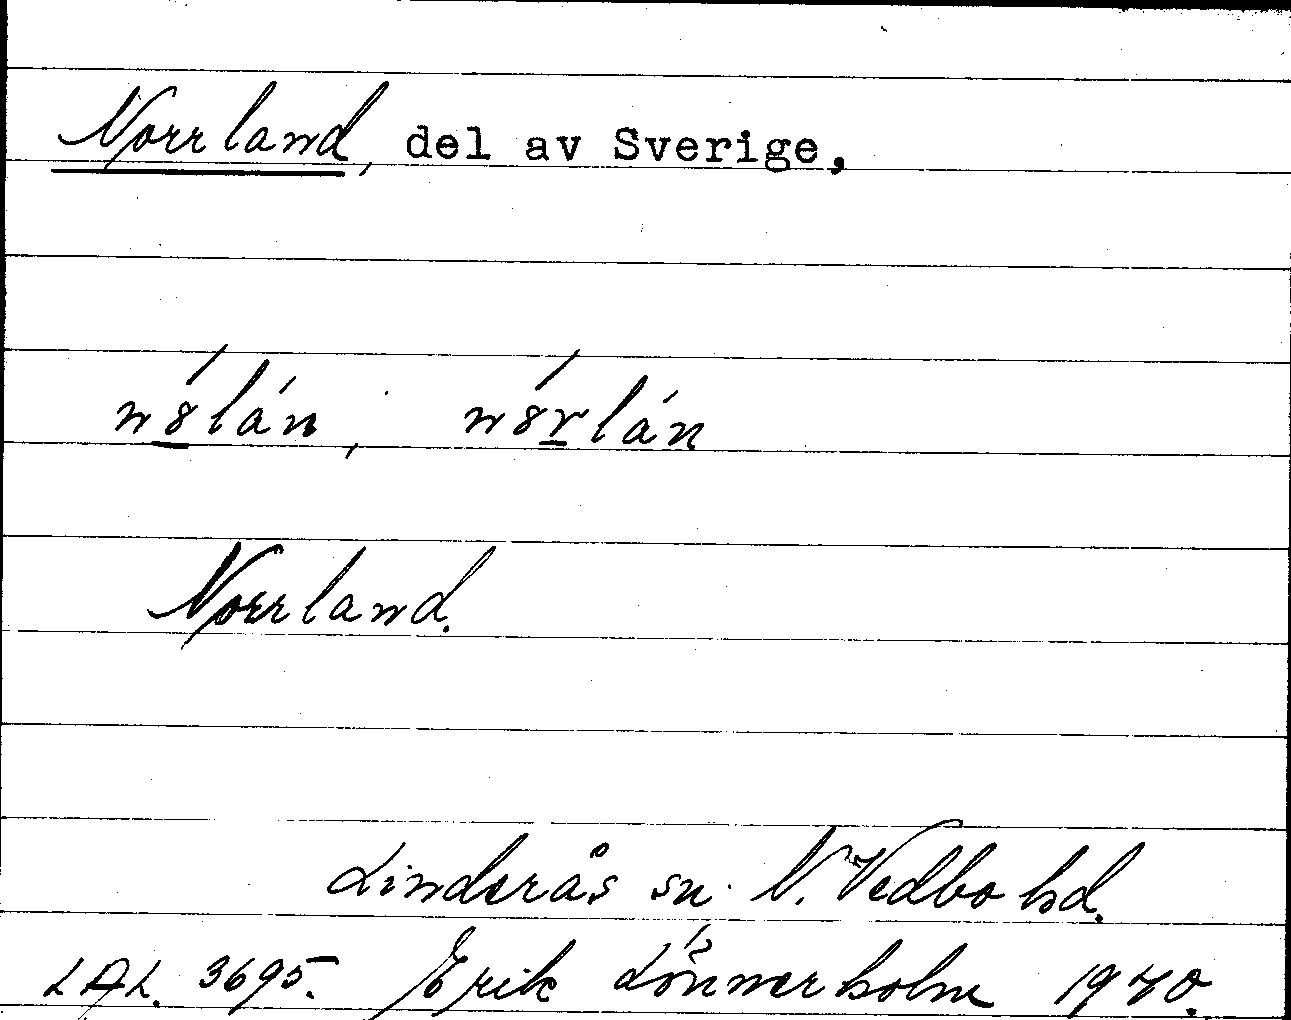 Norrland, del av Sverige,
n8́lán, n8́rlán
Norrland.
Linderås sn. N. Vedbo hd.
LAL. 3695. Erik Lönnerholm 1940.